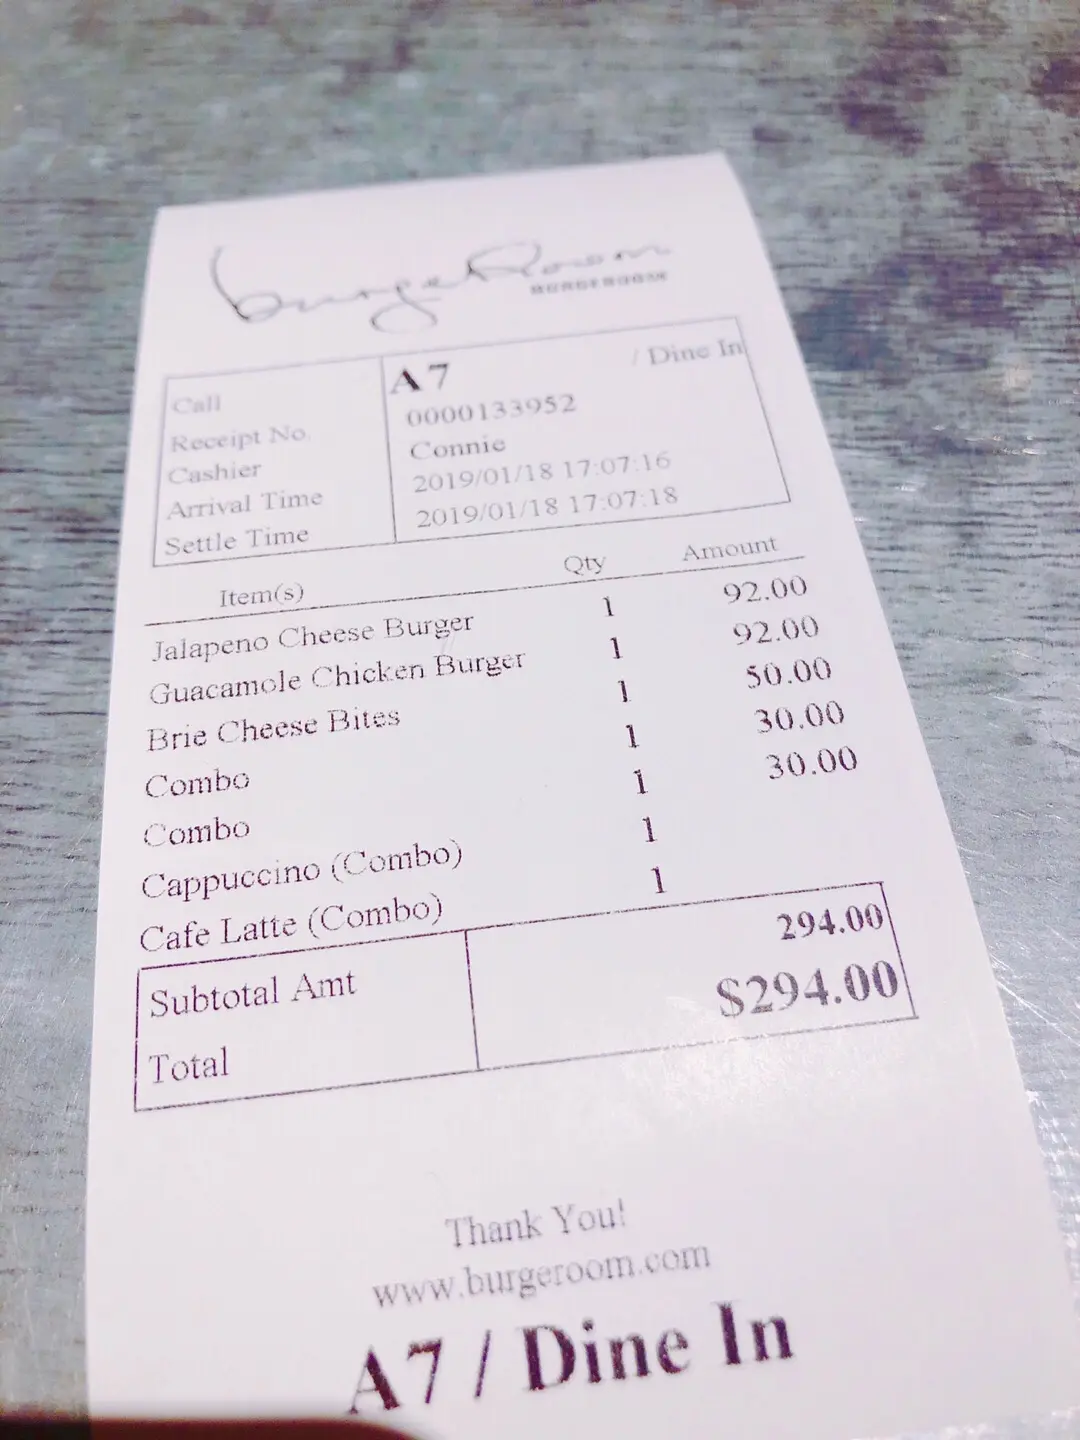 burgeRoom
BURGEROOM
Call A7 / Dine In
Receipt No. 0000133952
Cashier Connie
Arrival Time 2019/01/18 17:07:16
Settle Time 2019/01/18 17:07:18
Item(s) Qty Amount
Jalapeno Cheese Burger 1 92.00
Guacamole Chicken Burger 1 92.00
Brie Cheese Bites 1 50.00
Combo 1 30.00
Combo 1 30.00
Cappuccino (Combo) 1
Cafe Latte (Combo) 1
Subtotal Amt 294.00
Total $294.00
Thank You!
www.burgeroom.com
A7 / Dine In